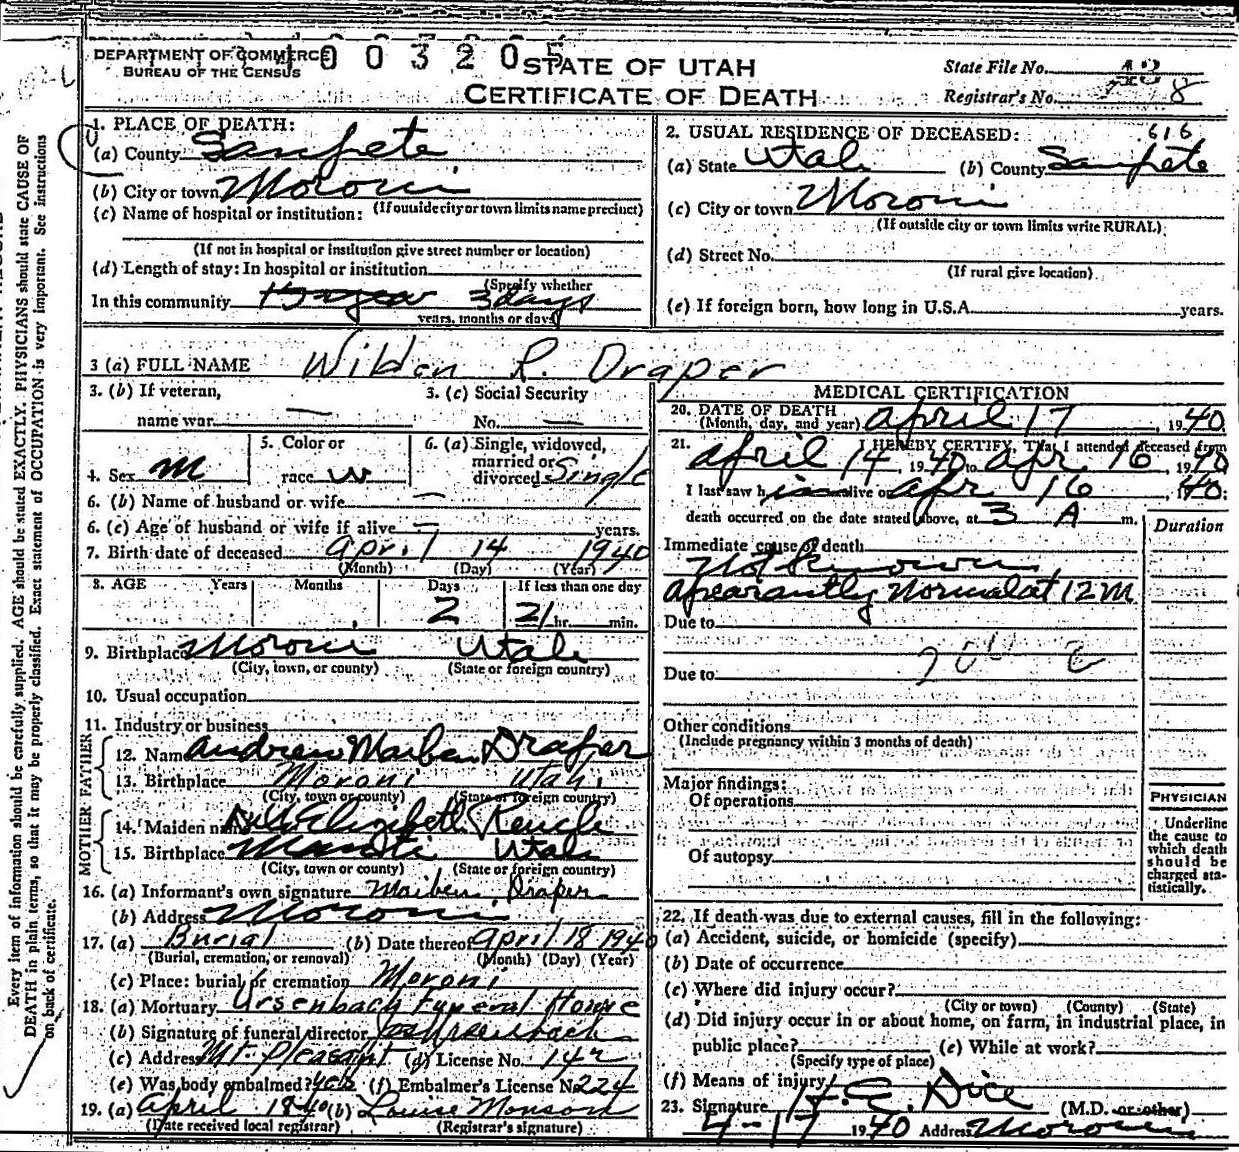 DEPARTMENT OF COMMERCE
BUREAU OF THE CENSUS
003205
STATE OF UTAH
CERTIFICATE OF DEATH
State File No.
Registrar's No. 8
Every item of information should be carefully supplied. AGE should be stated EXACTLY. PHYSICIANS should state CAUSE OF
DEATH in plain terms, so that it may be properly classified. Exact statement of OCCUPATION is very important. See instructions
on back of certificate.
1. PLACE OF DEATH:
(a) County Sanpete
(b) City or town Moroni
(If outside city or town limits name precinct)
(c) Name of hospital or institution:
(If not in hospital or institution give street number or location)
(d) Length of stay: In hospital or institution
(Specify whether
In this community 3 days
years, months or days)
2. USUAL RESIDENCE OF DECEASED: 616
(a) State Utah (b) County Sanpete
(c) City or town Moroni
(If outside city or town limits write RURAL)
(d) Street No.
(If rural give location)
(e) If foreign born, how long in U.S.A. years.
3 (a) FULL NAME Wilden R. Draper
3. (b) If veteran,
name war —
3. (c) Social Security
No. —
4. Sex M
5. Color or
race W
6. (a) Single, widowed,
married or
divorced Single
6. (b) Name of husband or wife —
6. (c) Age of husband or wife if alive — years.
7. Birth date of deceased April 14 1940
(Month) (Day) (Year)
8. AGE Years Months Days If less than one day
2 21 hr. min.
9. Birthplace Moroni Utah
(City, town, or county) (State or foreign country)
10. Usual occupation
11. Industry or business
FATHER
12. Name Andrew Maiben Draper
13. Birthplace Moroni Utah
(City, town or county) (State or foreign country)
MOTHER
14. Maiden name Elizibeth
15. Birthplace Manti Utah
(City, town or county) (State or foreign country)
16. (a) Informant's own signature Maiben Draper
(b) Address Moroni
17. (a) Burial (b) Date thereof April 18 1940
(Burial, cremation, or removal) (Month) (Day) (Year)
(c) Place: burial or cremation Moroni
18. (a) Mortuary Ursenbach Funeral Home
(b) Signature of funeral director Ursenbach
(c) Address Mt. Pleasant (d) License No. 142
(e) Was body embalmed? yes (f) Embalmer's License No. 224
19. (a) April 1940 (b) Louise Monson
(Date received local registrar) (Registrar's signature)
MEDICAL CERTIFICATION
20. DATE OF DEATH
(Month, day, and year) April 17, 1940
21. I HEREBY CERTIFY, That I attended deceased from
April 14, 1940 to Apr 16, 1940
I last saw him alive on Apr 16, 1940;
death occurred on the date stated above, at 3 A m.
Duration
Immediate cause of death
Not Known
Apearantly Normal at 12 M
Due to
Due to
Other conditions
(Include pregnancy within 3 months of death)
Major findings:
Of operations
Of autopsy
PHYSICIAN
Underline
the cause to
which death
should be
charged sta-
tistically.
22. If death was due to external causes, fill in the following:
(a) Accident, suicide, or homicide (specify)
(b) Date of occurrence
(c) Where did injury occur?
(City or town) (County) (State)
(d) Did injury occur in or about home, on farm, in industrial place, in
public place? (e) While at work?
(Specify type of place)
(f) Means of injury
23. Signature H. C. Dice (M.D. or other)
4-17 1940 Address Moroni